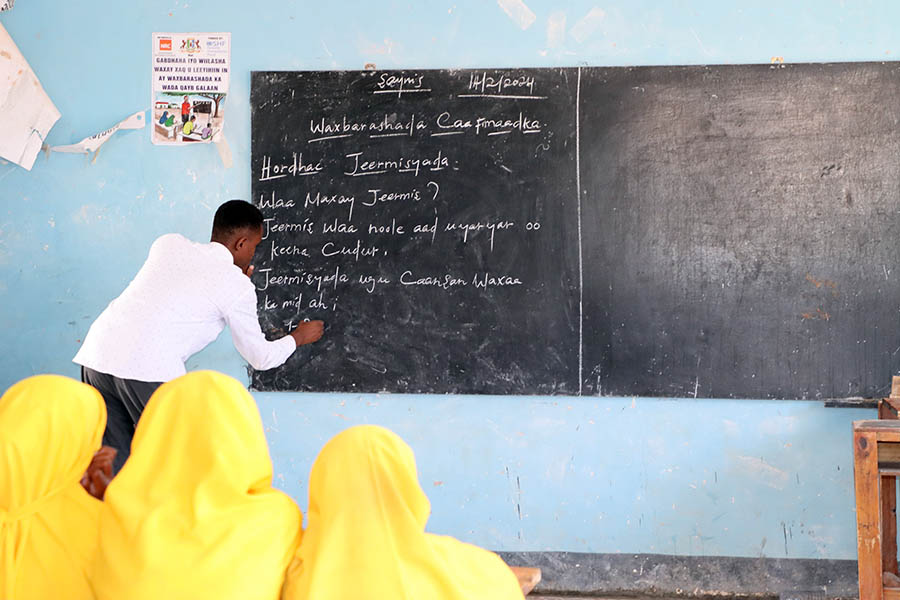 NRC
GABDHAHA IYO WIILASHA
WAXAY XAQ U LEEYIHIIN IN
AY WAXBARASHADA KA
WADA QAYB GALAAN
Saynis 14/2/2024
Waxbarashada Caafimaadka.
Hordhac Jeermisyada.
Waa Maxay Jeermis?
Jeermis waa noole aad uyaryar oo
keena Cudur.
Jeermisyada ugu Caansan Waxaa
ka mid ah;